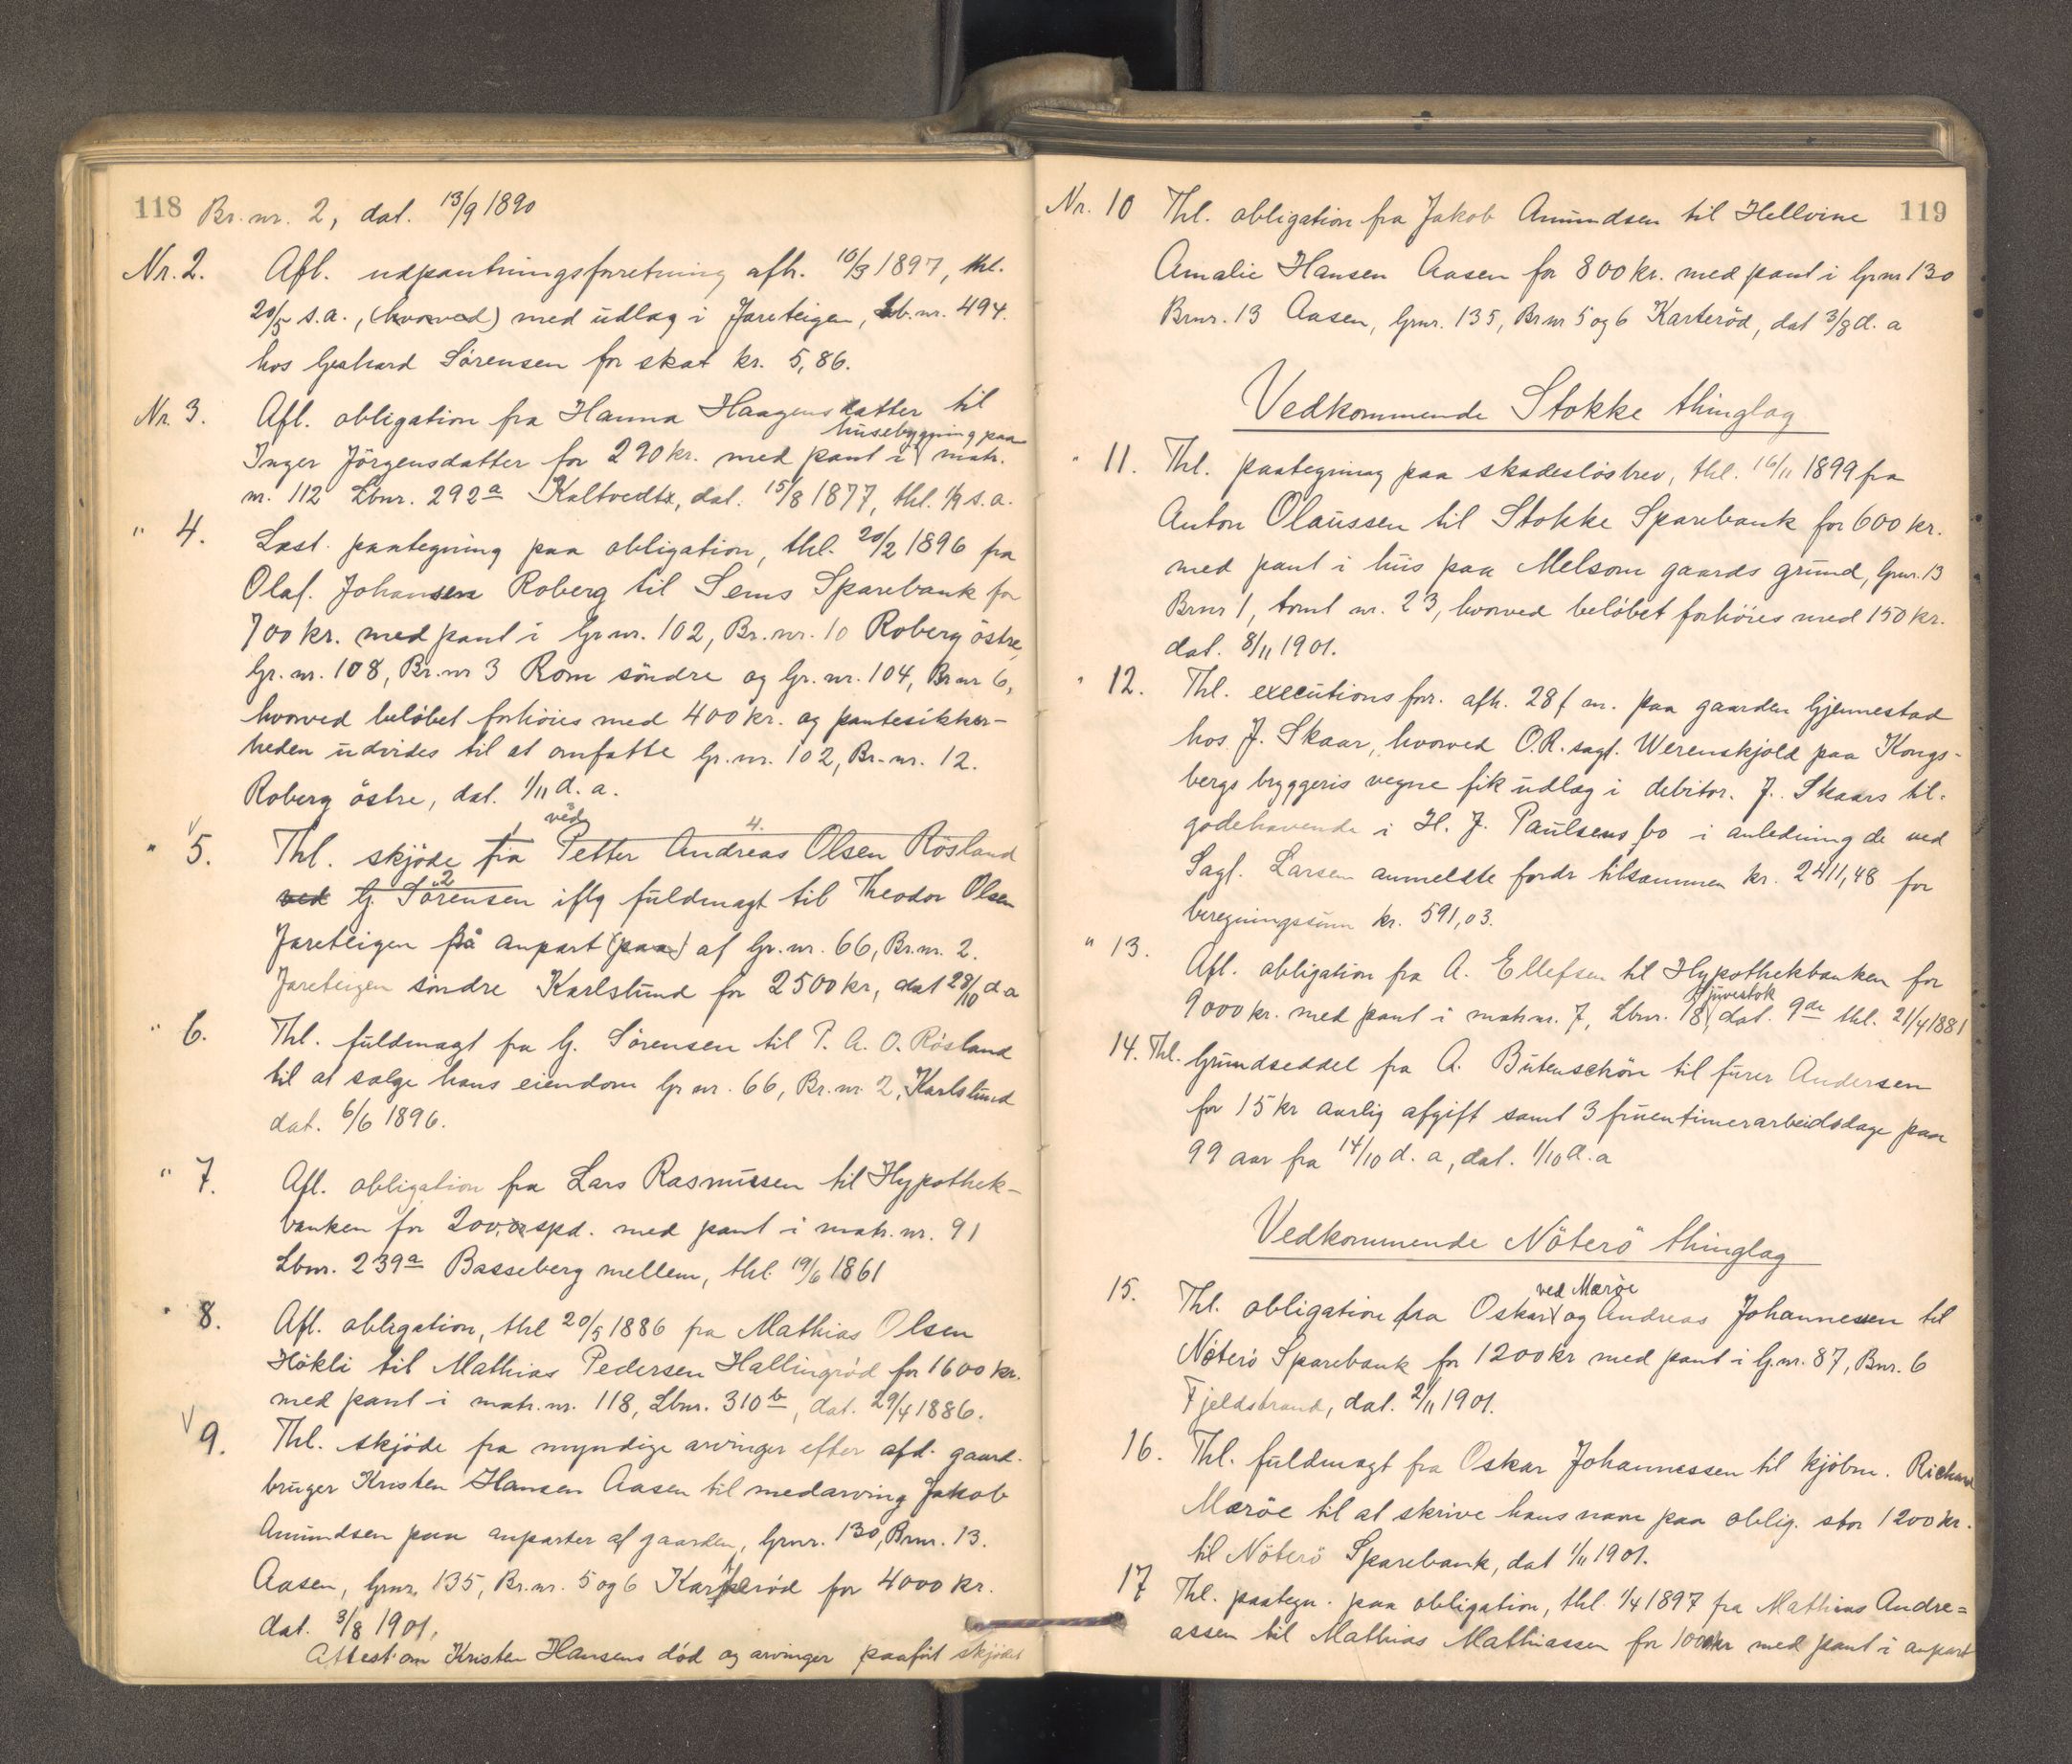 118 Br. nr. 2, dat. 13/9 1890
Nr. 2. Afl. udpantningsforretning afh. 10/3 1897, thl.
20/5 s.a., (hvorved) med udlag i Jareteigen, Lb.nr. 494.
hos Gerhard Sörensen for skat kr. 5,86.
Nr. 3. Afl. obligation fra Hanna Haagensdatter til
husebygning paa
Inger Jörgensdatter for 290 kr. med pant i matr.
nr. 112 Lbnr. 292a Kaltvedt, dat. 15/8 1877, thl. 1/9 s.a.
" 4. Læst paategning paa obligation, thl. 20/2 1896 fra
Olaf. Johansen Roberg til Sems Sparebank for
700 kr. med pant i Gr.nr. 102, Br.nr. 10 Roberg östre,
Gr. nr. 108, Br.nr 3 Rom söndre og Gr. nr. 104, Br nr 6,
hvorved belöbet forhöies med 400 kr. og pantesikker-
heden udvides til at omfatte Gr. nr. 102, Br. nr. 12.
Roberg östre, dat. 1/11 d. a.
ved 4.
" 5. Thl. skjöde fra Petter Andreas Olsen Rösland
2
ved G. Sörensen iflg fuldmagt til Theodor Olsen
Jareteigen på anpart (paa) af Gr. nr. 66, Br.nr. 2.
Jareteigen söndre Karlslund for 2500 kr, dat 28/10 d a
" 6. Thl. fuldmagt fra G. Sörensen til P. A. O. Rösland
til at sælge hans eiendom Gr nr. 66, Br. nr. 2, Karlslund
dat. 6/6 1896.
" 7. Afl. obligation fra Lars Rasmussen til Hypothek-
banken for 200 spd. med pant i matr. nr. 91
Lbnr. 239a Basseberg mellem, thl. 19/6 1861
" 8. Afl. obligation, thl 20/5 1886 fra Mathias Olsen
Hökli til Mathias Pedersen Hallingröd for 1600 kr.
med pant i matr. nr. 118, Lbnr. 310b, dat. 29/4 1886.
9. Thl. skjöde fra myndige arvinger efter afd. gaard-
bruger Kristen Hansen Aasen til medarving Jakob
Amundsen paa anparter af gaarden, Grnr. 130, Brnr. 13.
Aasen, Grnr. 135, Br. nr. 5 og 6 Karteröd for 4000 kr.
dat. 3/8 1901.
Attest om Kristen Hansens död og arvinger paafört skjödet
119
Nr. 10 Thl. obligation fra Jakob Amundsen til Hellvine
Amalie Hansen Aasen for 800 kr. med pant i Grnr 130
Brnr. 13 Aasen, Grnr. 135, Br nr 5 og 6 Karteröd, dat 3/8 d. a
Vedkommende Stokke thinglag
" 11. Thl. paategning paa skadeslösbrev, thl. 16/11 1899 fra
Anton Olaussen til Stokke Sparebank for 600 kr.
med pant i hus paa Melsom gaards grund, Grnr. 13
Brnr 1, tomt nr. 23, hvorved belöbet forhöies med 150 kr.
dat. 8/11 1901.
" 12. Thl. executionsforr. afh. 28 f m. paa gaarden Gjennestad
hos J. Skaar, hvorved O.R. sagf. Werenskjold paa Kongs-
bergs bryggeris vegne fik udlæg i debitor. J. Skaars til-
godehavende i H. J. Paulsens bo i anledning de ved
Sagf. Larsen anmeldte fordr tilsammen kr. 2411,48 for
beregningssum kr. 591,03.
" 13. Afl. obligation fra A. Ellefsen til Hypothekbanken for
9000 kr. med pant i matr nr. 7, Lbnr. 18, dat. 9de thl. 21/4 1881
14. Thl. Grundseddel fra A. Butenschön til furer Andersen
for 15 kr aarlig afgift samt 3 fruentimerarbeidsdage paa
99 aar fra 14/10 d. a, dat. 1/10 d. a
Vedkommende Nöterö thinglag
ved Meröe
15. Thl. obligation fra Oskar og Andreas Johannessen til
Nöterö Sparebank for 1200 kr med pant i G.nr. 87, Bnr. 6
Fjeldstrand, dat. 2/11 1901.
16. Thl. fuldmagt fra Oskar Johannessen til kjöbm. Richard
Meröe til at skrive hans navn paa oblig. stor 1200 kr.
til Nöterö Sparebank, dat 1/11 1901.
17 Thl. paategn. paa obligation, thl. 1/4 1897 fra Mathias Andre=
assen til Mathias Mathiassen for 1000 kr med pant i anpart